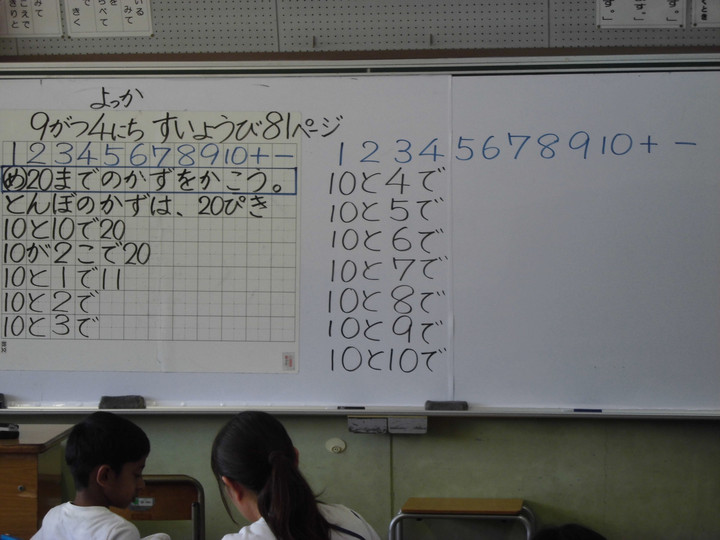 よっか
9がつ4にち すいようび 81ページ
1 2 3 4 5 6 7 8 9 10 + −
め 20までのかずをかこう。
とんぼのかずは、20ぴき
10と10で20
10が2こで20
10と1で11
10と2で
10と3で
1 2 3 4 5 6 7 8 9 10 + −
10と4で
10と5で
10と6で
10と7で
10と8で
10と9で
10と10で